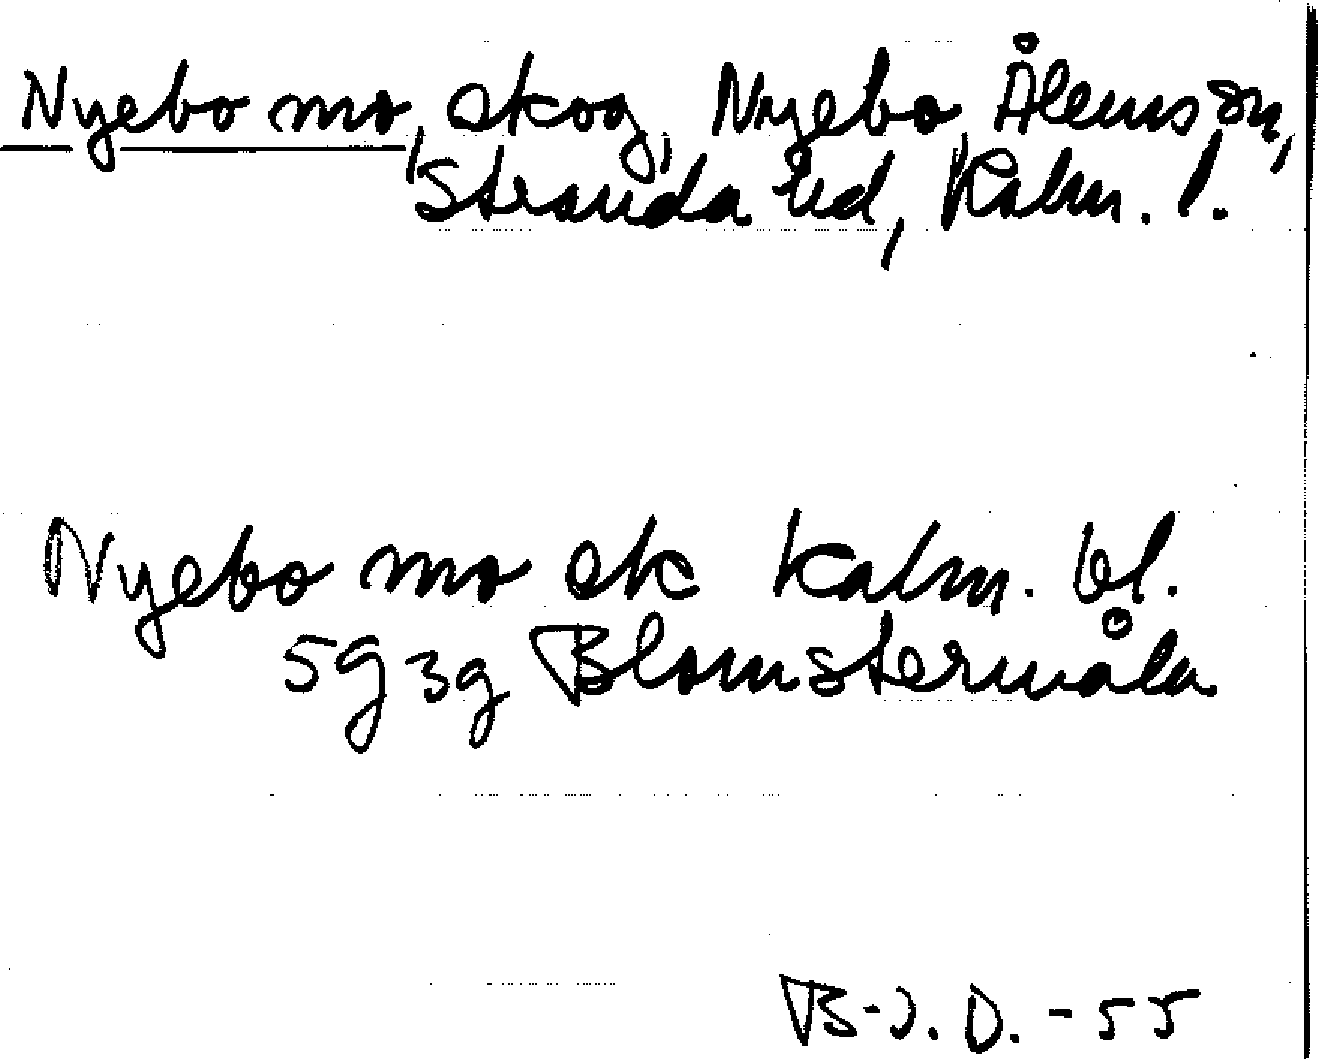 Nyebo mo, skog, Nyebo, Ålems sn,
Stranda hd, Kalm. l.
Nyebo mo sk Kalm. bl.
5g 3g Blomstermåla
B-J. D. - 55